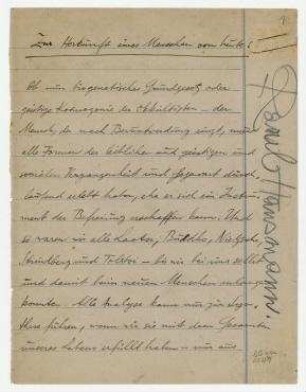 Zur Herkunft eines Menschen von heute!
Ob nun biogenetisches Grundgesetz oder
geistige Kosmogonie des Okkultisten – der
Mensch, der nach Berunbindung ringt, muss
alle Formen der leiblichen und geistigen und
sozialen Vergangenheit und Gegenwart durch-
laufend erlebt haben, ehe er sich ein Instru-
ment der Befreiung erschaffen kann. Und
so waren wir alle Laotse, Buddha, Nietzsche,
Strindberg und Tolstoi – bis wir bei uns selbst
und damit beim neuen Menschen anlangen
konnten. Alle Analyse kann nur zur
führen, wenn wir sie mit dem Gesamten
unseres Lebens erfüllt haben u. nur aus
Raoul Hausmann.